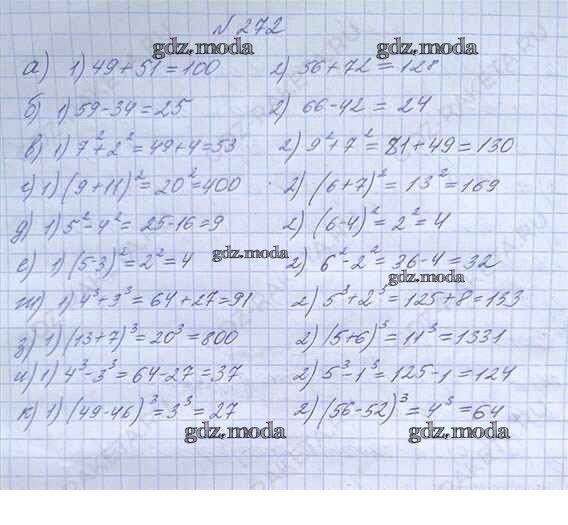 № 272
gdz.moda gdz.moda
а) 1) 49+51=100 2) 56+72=128
б) 1) 59-34=25 2) 66-42=24
в) 1) 7²+2²=49+4=53 2) 9²+7²=81+49=130
г) 1) (9+11)²=20²=400 2) (6+7)²=13²=169
д) 1) 5²-4²=25-16=9 2) (6-4)²=2²=4
е) 1) (5-3)²=2²=4 gdz.moda 2) 6²-2²=36-4=32
gdz.moda
ж) 1) 4³+3³=64+27=91 2) 5³+2³=125+8=133
з) 1) (13+7)³=20³=800 2) (5+6)³=11³=1331
и) 1) 4³-3³=64-27=37 2) 5³-1³=125-1=124
к) 1) (49-46)³=3³=27 2) (56-52)³=4³=64
gdz.moda gdz.moda